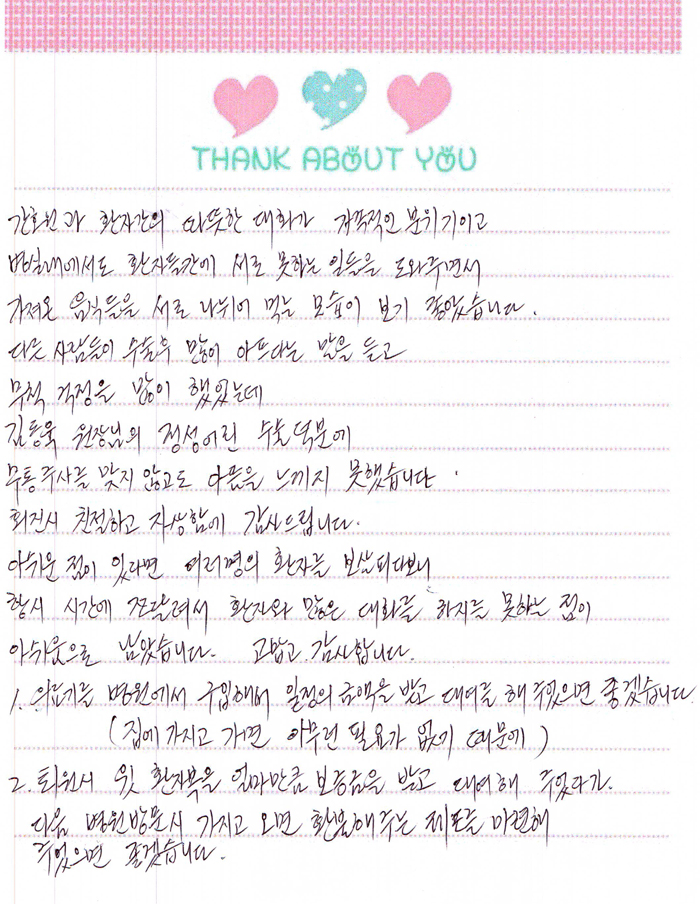 THANK ABOUT YOU
간호원과 환자간의 따뜻한 대화가 가족적인 분위기이고
병실내에서도 환자들간에 서로 못하는 일들을 도와주면서
가져온 음식들을 서로 나뉘어 먹는 모습이 보기 좋았습니다.
다른 사람들이 수술후 많이 아프다는 말을 듣고
무척 걱정을 많이 했었는데
김동욱 원장님의 정성어린 수술 덕분에
무통주사를 맞지 않고도 아픔을 느끼지 못했습니다.
회진시 친절하고 자상함에 감사드립니다.
아쉬운 점이 있다면 여러명의 환자를 보살피다보니
항시 시간에 쪼달려서 환자와 많은 대화를 하지를 못하는 점이
아쉬움으로 남았습니다. 고맙고 감사합니다.
1. 병원에서 구입해서 일정의 금액을 받고 대여를 해 주었으면 좋겠습니다
(집에 가지고 가면 아무런 필요가 없기 때문에)
2. 퇴원시 윗 환자복을 얼마만큼 보증금을 받고 대여해 주었다가.
다음 병원방문시 가지고 오면 환불해주는 제도를 마련해
주었으면 좋겠습니다.